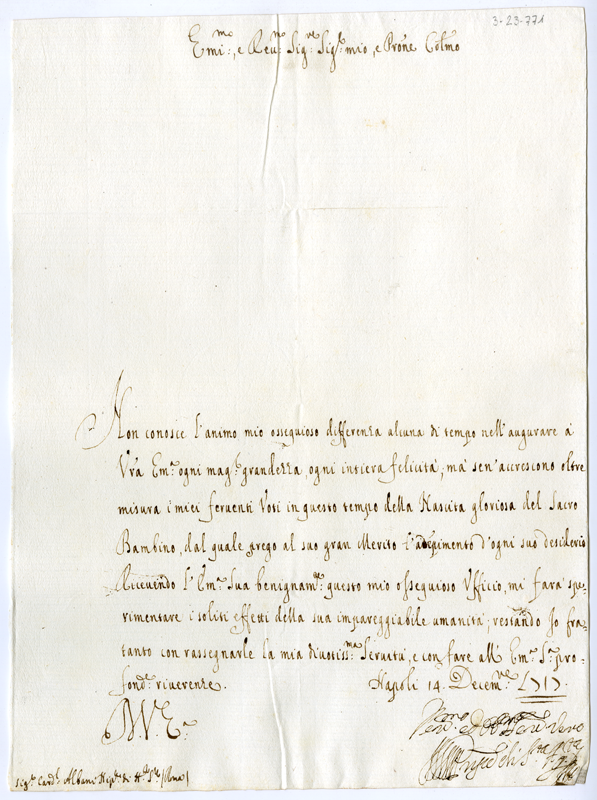 3-23-771
Em̃i:mo, e Reu:mo Sig:re Sig:r mio, e Prone Colmo
Non conosce l'animo mio ossequioso differenza alcuna di tempo nell'augurare à
Vrã Em:a ogni mag:r grandezza, ogni intiera felicità; mà sen'accrescono oltre
misura i miei feruenti Voti in questo tempo della Nascita gloriosa del Sacro
Bambino, dal quale prego al suo gran Merito l'adempimento d'ogni suo desiderio
Riceuendo l'Em:a Sua benignam:te questo mio ossequioso Vfficio, mi farà spe-
rimentare i soliti effetti della sua impareggiabile umanità; restando Io fra-
tanto con rassegnarle la mia diuotiss:ma Seruitù, e con fare all' Em:a S:a pro-
fond:e riuerenze.
Napoli 14. Decem:re
D V E:a
Sig:r Card:l Albani